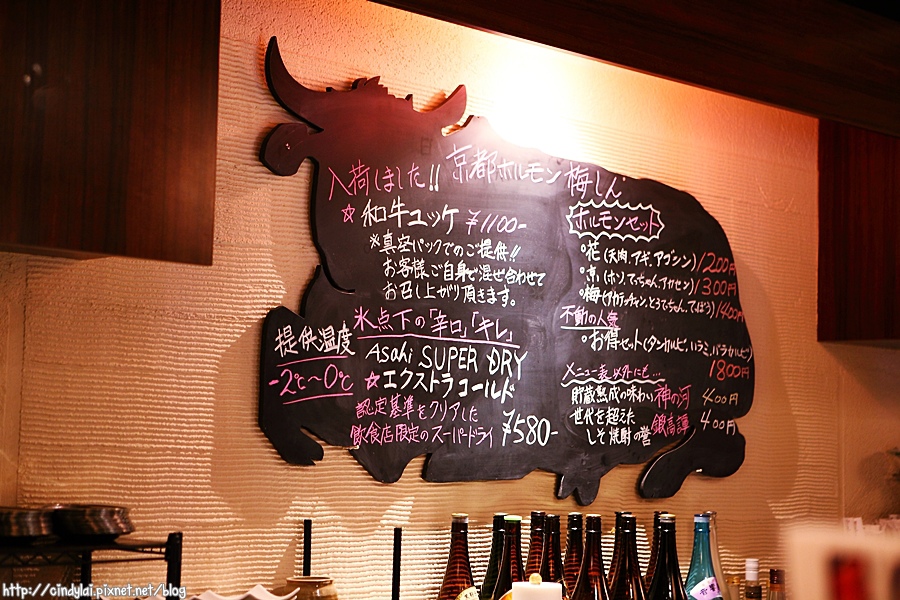 入荷しました!! 京都ホルモン梅しん
☆和牛ユッケ ¥1100-
※真空パックでのご提供!!
お客様ご自身で混ぜ合わせて
お召し上がり頂きます。
提供温度
-2℃～0℃
氷点下の「辛口」「キレ」
Asahi SUPER DRY
☆エクストラコールド
認定基準をクリアした
飲食店限定のスーパードライ ¥580-
ホルモンセット
・花(天肉、アギ、アゴシン) 1200円
・京(ホソ、てっちゃん、アカセン) 1300円
・梅(アカテッチャン、とうてっちゃん、てっぽう) 1400円
不動の人気
・お得セット(タンカルビ、ハラミ、バラカルビ)
1800円
メニュー表以外にも…
貯蔵熟成の味わい 神の河 400円
世代を超えた
しそ焼酎の誉 鍛高譚 400円
http://cindylai.pixnet.net/blog